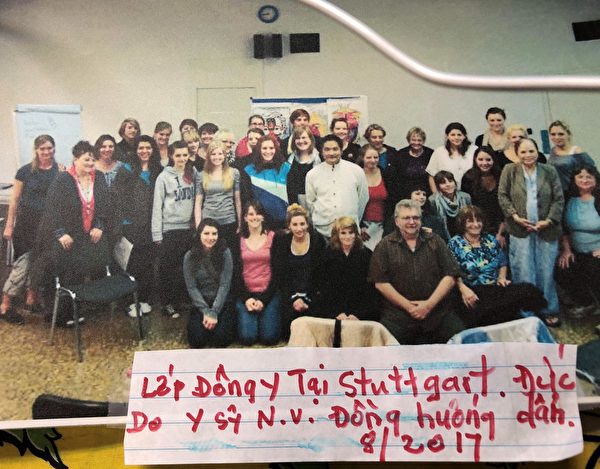 Lớp Đông y Tại Stuttgart. Đức
Do y sỹ N.V. Đồng hướng dẫn.
8/2017